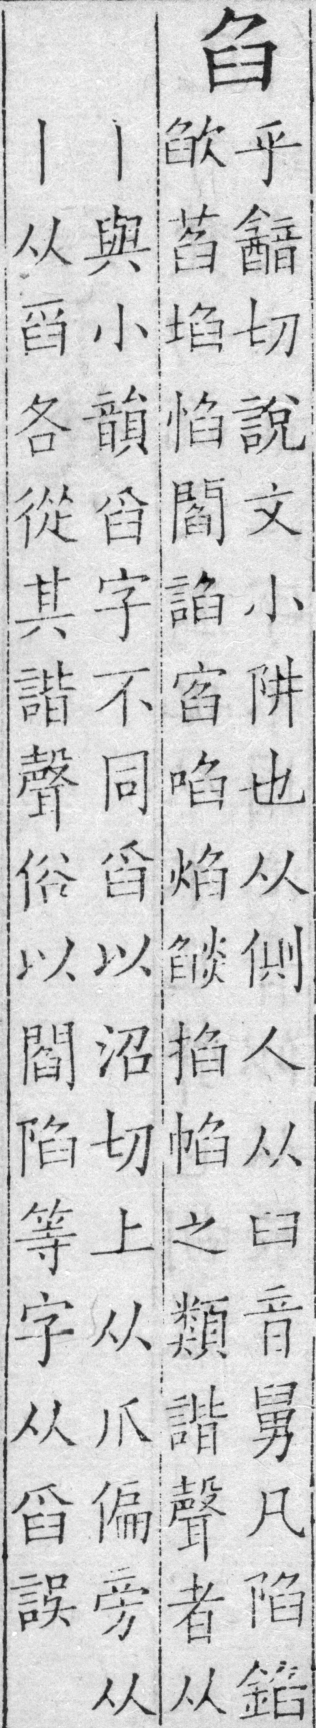 臽
乎韽切說文小阱也从側人从臼音舅凡陷錎
欿萏埳惂閻諂窞啗焰燄掐㡊之類諧聲者从
｜與小韻舀字不同舀以沼切上从爪偏旁从
｜从舀各從其諧聲俗以閻陷等字从舀誤